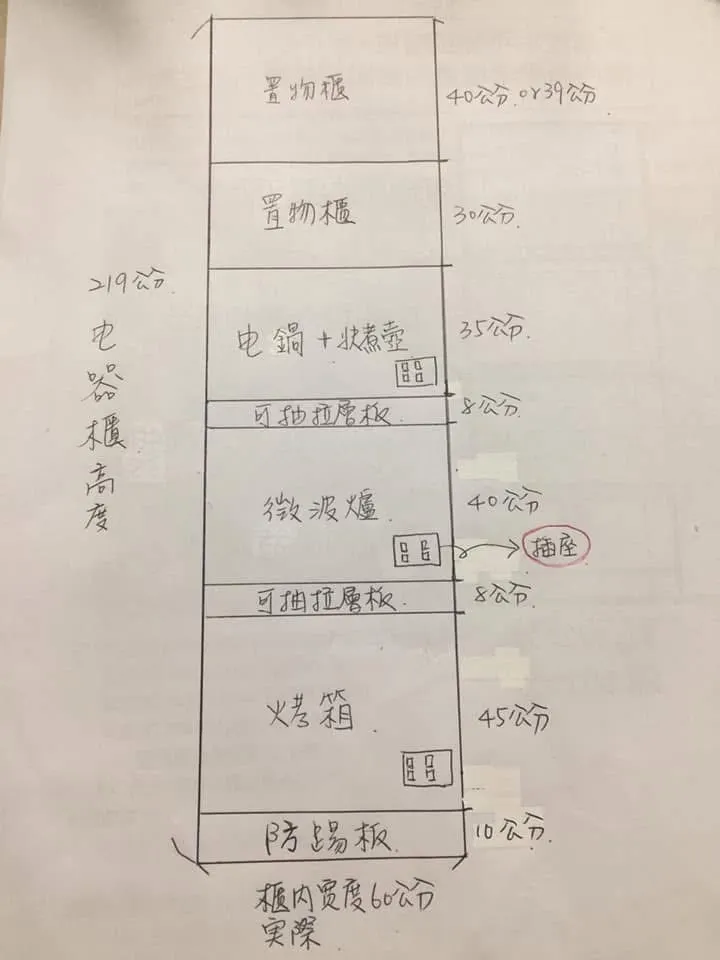 置物櫃
40公分 or 39公分
置物櫃
30公分
219公分
电器櫃高度
电鍋+快煮壺
35公分
可抽拉層板
8公分
微波爐
40公分
插座
可抽拉層板
8公分
烤箱
45公分
防踢板
10公分
櫃内宽度60公分
実際